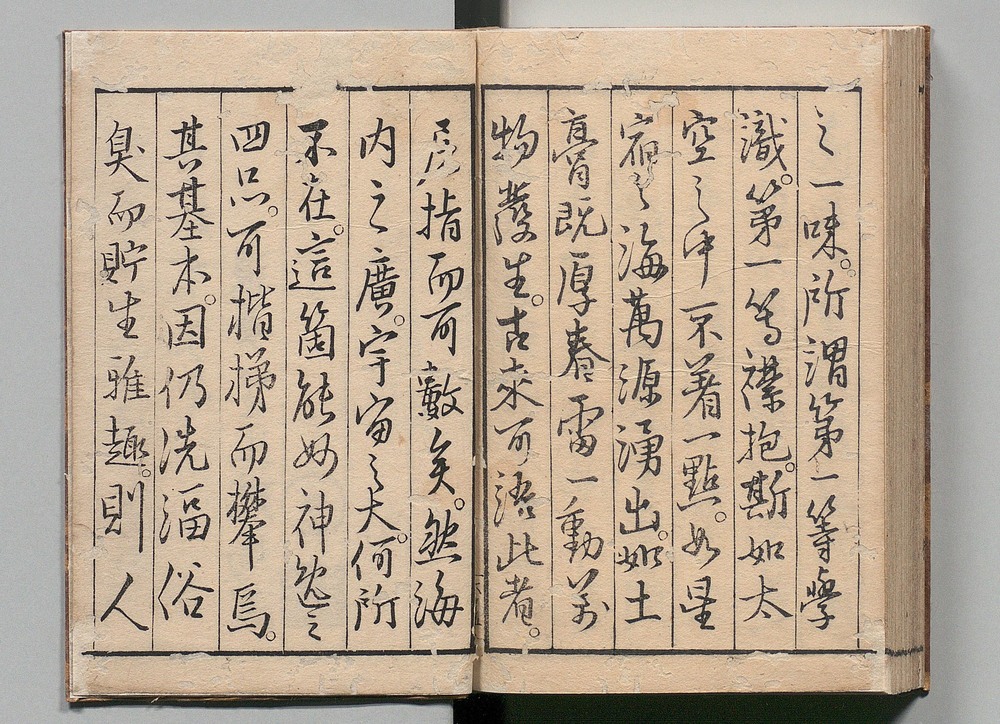 之一味。所謂第一等學
識。第一等襟抱。斯如太
空之中不着一點。如星
宿之海萬源湧出。如土
膏既厚春雷一動萬
物發生。古來可語此者。
屈指而可數矣。然海
内之廣。宇宙之大。何所
不在。這箇能如神逸之
四品。可楷梯而攀焉。
其基本。因仍洗湢俗
臭而貯生雅趣。則人